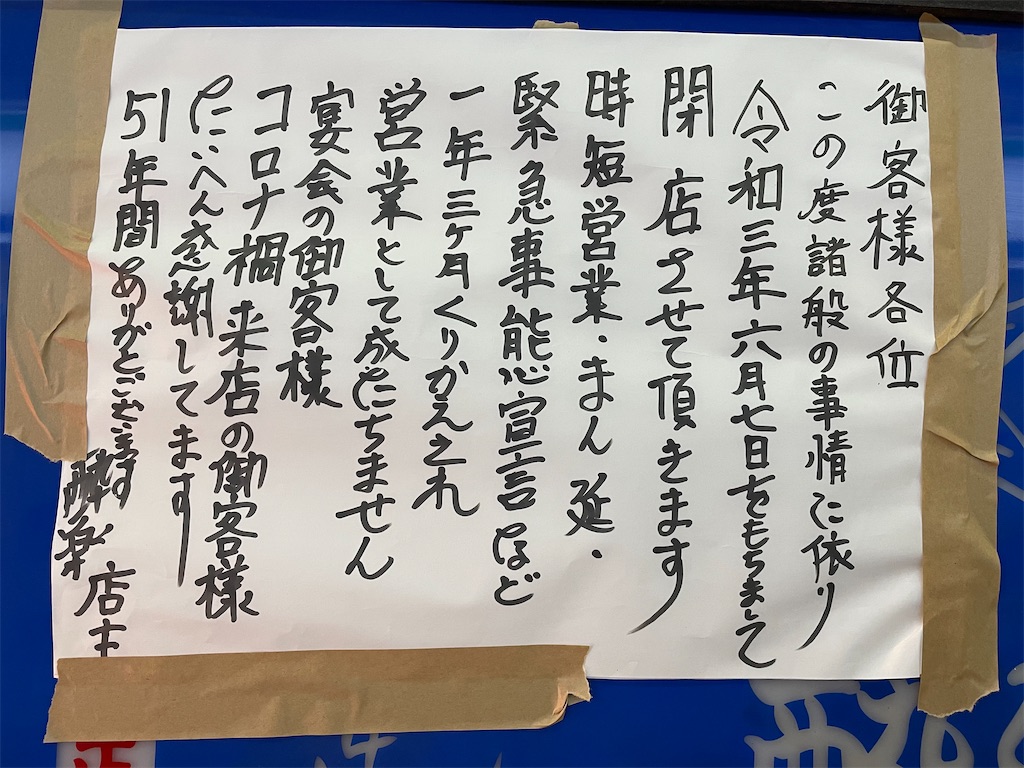 御客様各位
この度諸般の事情に依り
令和三年六月七日をもちまして
閉店させて頂きます
時短営業・まん延・
緊急事態宣言など
一年三ヶ月くりかえされ
営業として成たちません
宴会の御客様
コロナ禍来店の御客様
たいへん感謝してます
51年間ありがとございます
酔楽 店主